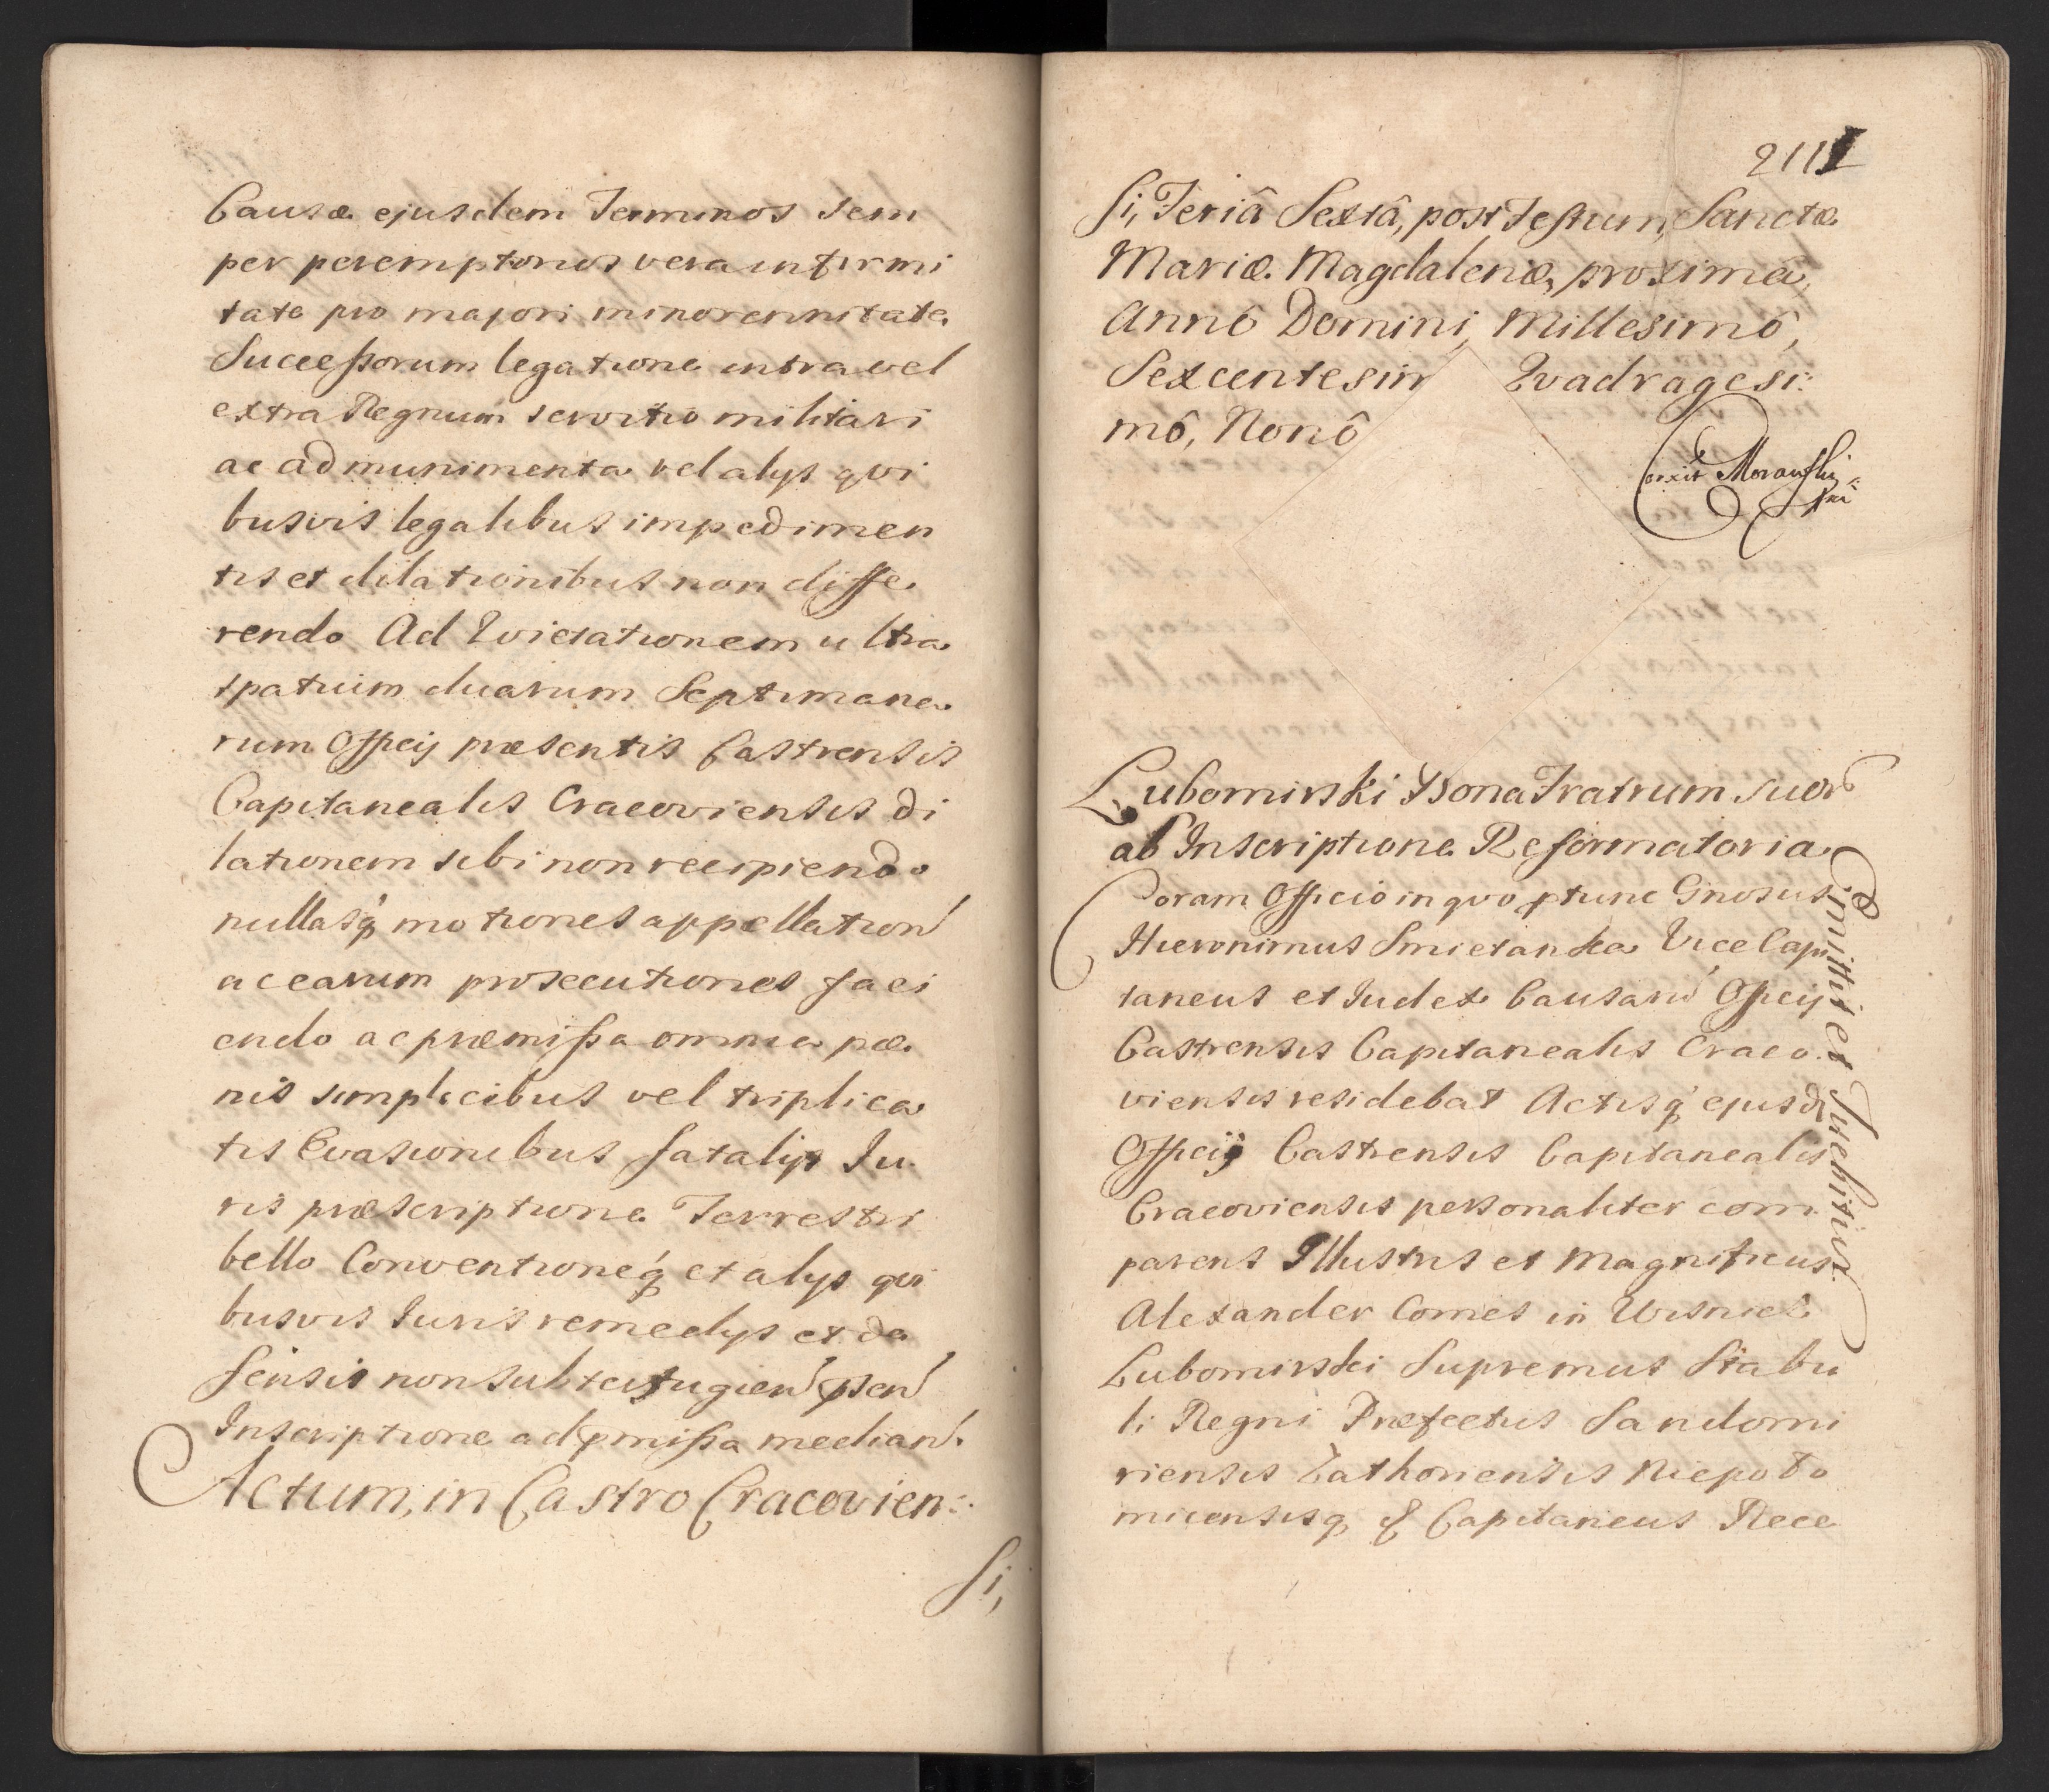 Causæ ejusdem Terminos Sem
per peremptorios vera infirmi
tate pro majori minorennitate
Successorum legatione intra vel
extra Regnum servitio militari
ac ad munimenta vel alys qvi
busvis legalibus impedimen
tis et dilationibus non diffe
rendo Ad Evictationem ultra
spatium duarum Septimana
rum Officij præsentis Castrensis
Capitanealis Cracoviensis di
lationem sibi non recipiendo
nullasq motiones appellation
ac earum prosecutiones faci
endo ac præmissa omnia pæ
nis simplicibus vel triplica
tis Evasionibus fatalijs Iu
ris præscriptione Terrestri
bello Conventioneq et alys qvi
busvis Iuris remedys et de
fensis non subterfugien psen
Inscriptione ad pmissa median
Actum, in Castro Cracovien:
Si,
2111
Si, Feriâ Sextâ, post Festum, Sanctæ
Mariæ Magdalenæ, proxima,
Annô Domini, Millesimô,
Sexcentesim Qvadragesi:
mô, Nonô
Corxit Moraufski
Lubomirski Bona Fratrum Suor
ab Inscriptione Reformatoria
Emittit et Inscribitur
Coram Officio in qvo ptunc Gnosus
Hieronimus Smietanka Vice Capi
taneus et Iudex Causarũ Officij
Castrensis Capitanealis Craco
viensis residebat Actisq ejusd
Officij Castrensis Capitanealis
Cracoviensis personaliter com
parens Illustris et Magnificus
Alexander Comes in Wisnicz
Lubomirski Supremus Stabu
li Regni Præfectus Sandomi
riensis Zathoriensis Niepoło
micensisq & Capitaneus Rece